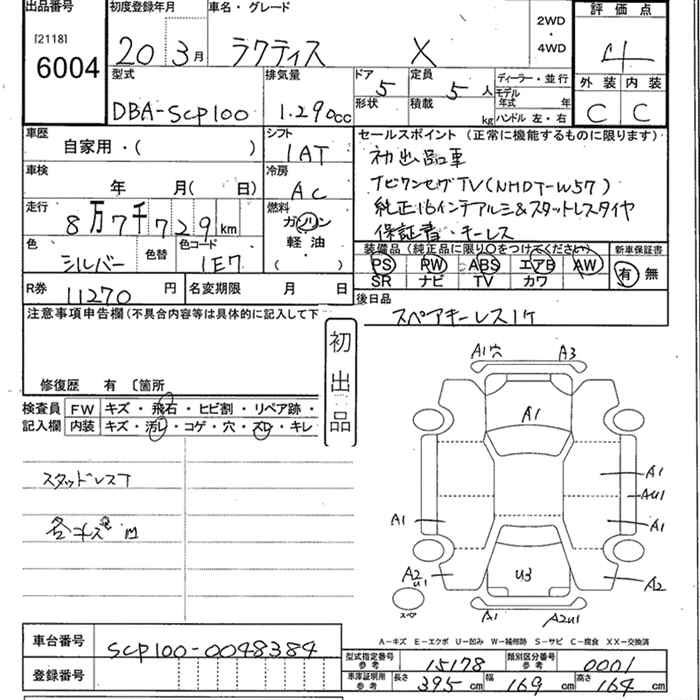 出品番号 初度登録年月 車名・グレード 2WD・4WD 評価点
[2118] 20 3月 ラクティス X 4
6004
型式 排気量 ドア 5 定員 5人 ディーラー・並行 外装 内装
DBA-SCP100 1.290cc 形状 積載 kg モデル年式 年 C C
ハンドル 左・右
車歴 シフト セールスポイント(正常に機能するものに限ります)
自家用・( ) IAT 初出品車
車検 冷房 ナビワンセグTV(NHDT-W57)
年 月(日) AC 純正16インチアルミ&スタットレスタイヤ
走行 燃料 保証書・キーレス
8万7千729km ガソリン
軽油・
( )
色 色替 色コード 装備品(純正品に限り〇をつけてください) 新車保証書
シルバー 1E7 PS PW ABS エアB AW 有 無
SR ナビ TV カワ
R券 11270円 名変期限 月 日 後日品
スペアキーレス1ケ
注意事項申告欄(不具合内容等は具体的に記入して下
初出品
修復歴 有 〔箇所
検査員 FW キズ・飛石・ヒビ割・リペア跡・
記入欄 内装 キズ・汚レ・コゲ・穴・スレ・キレ
スタッドレスT
各キズ
A1穴 A3
A1
A1
AU1
A1 A1
A2
U1 U3 A2
スペア A1 A2U1
A-キズ E-エクボ U-凹み W-補修跡 S-サビ C-腐食 XX-交換済
車台番号 SCP100-0048384
型式指定番号 参考 15178 類別区分番号 参考 0001
登録番号 車庫証明用 参考 長さ 395cm 幅 169cm 高さ 164cm